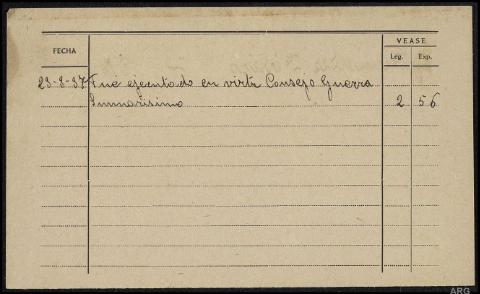 VEASE
FECHA
Leg. Exp.
23-8-37 Fué ejecutado en virtu Consejo Guerra
Sumarisimo 2 56
ARG